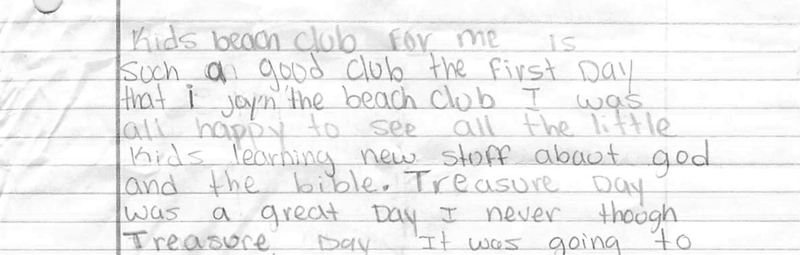 Kids beach club for me is
such a good club the first Day
that i joyn the beach club I was
all happy to see all the little
kids learning new stoff abaot god
and the bible. Treasure Day
was a great Day I never though
Treasure Day It was going to